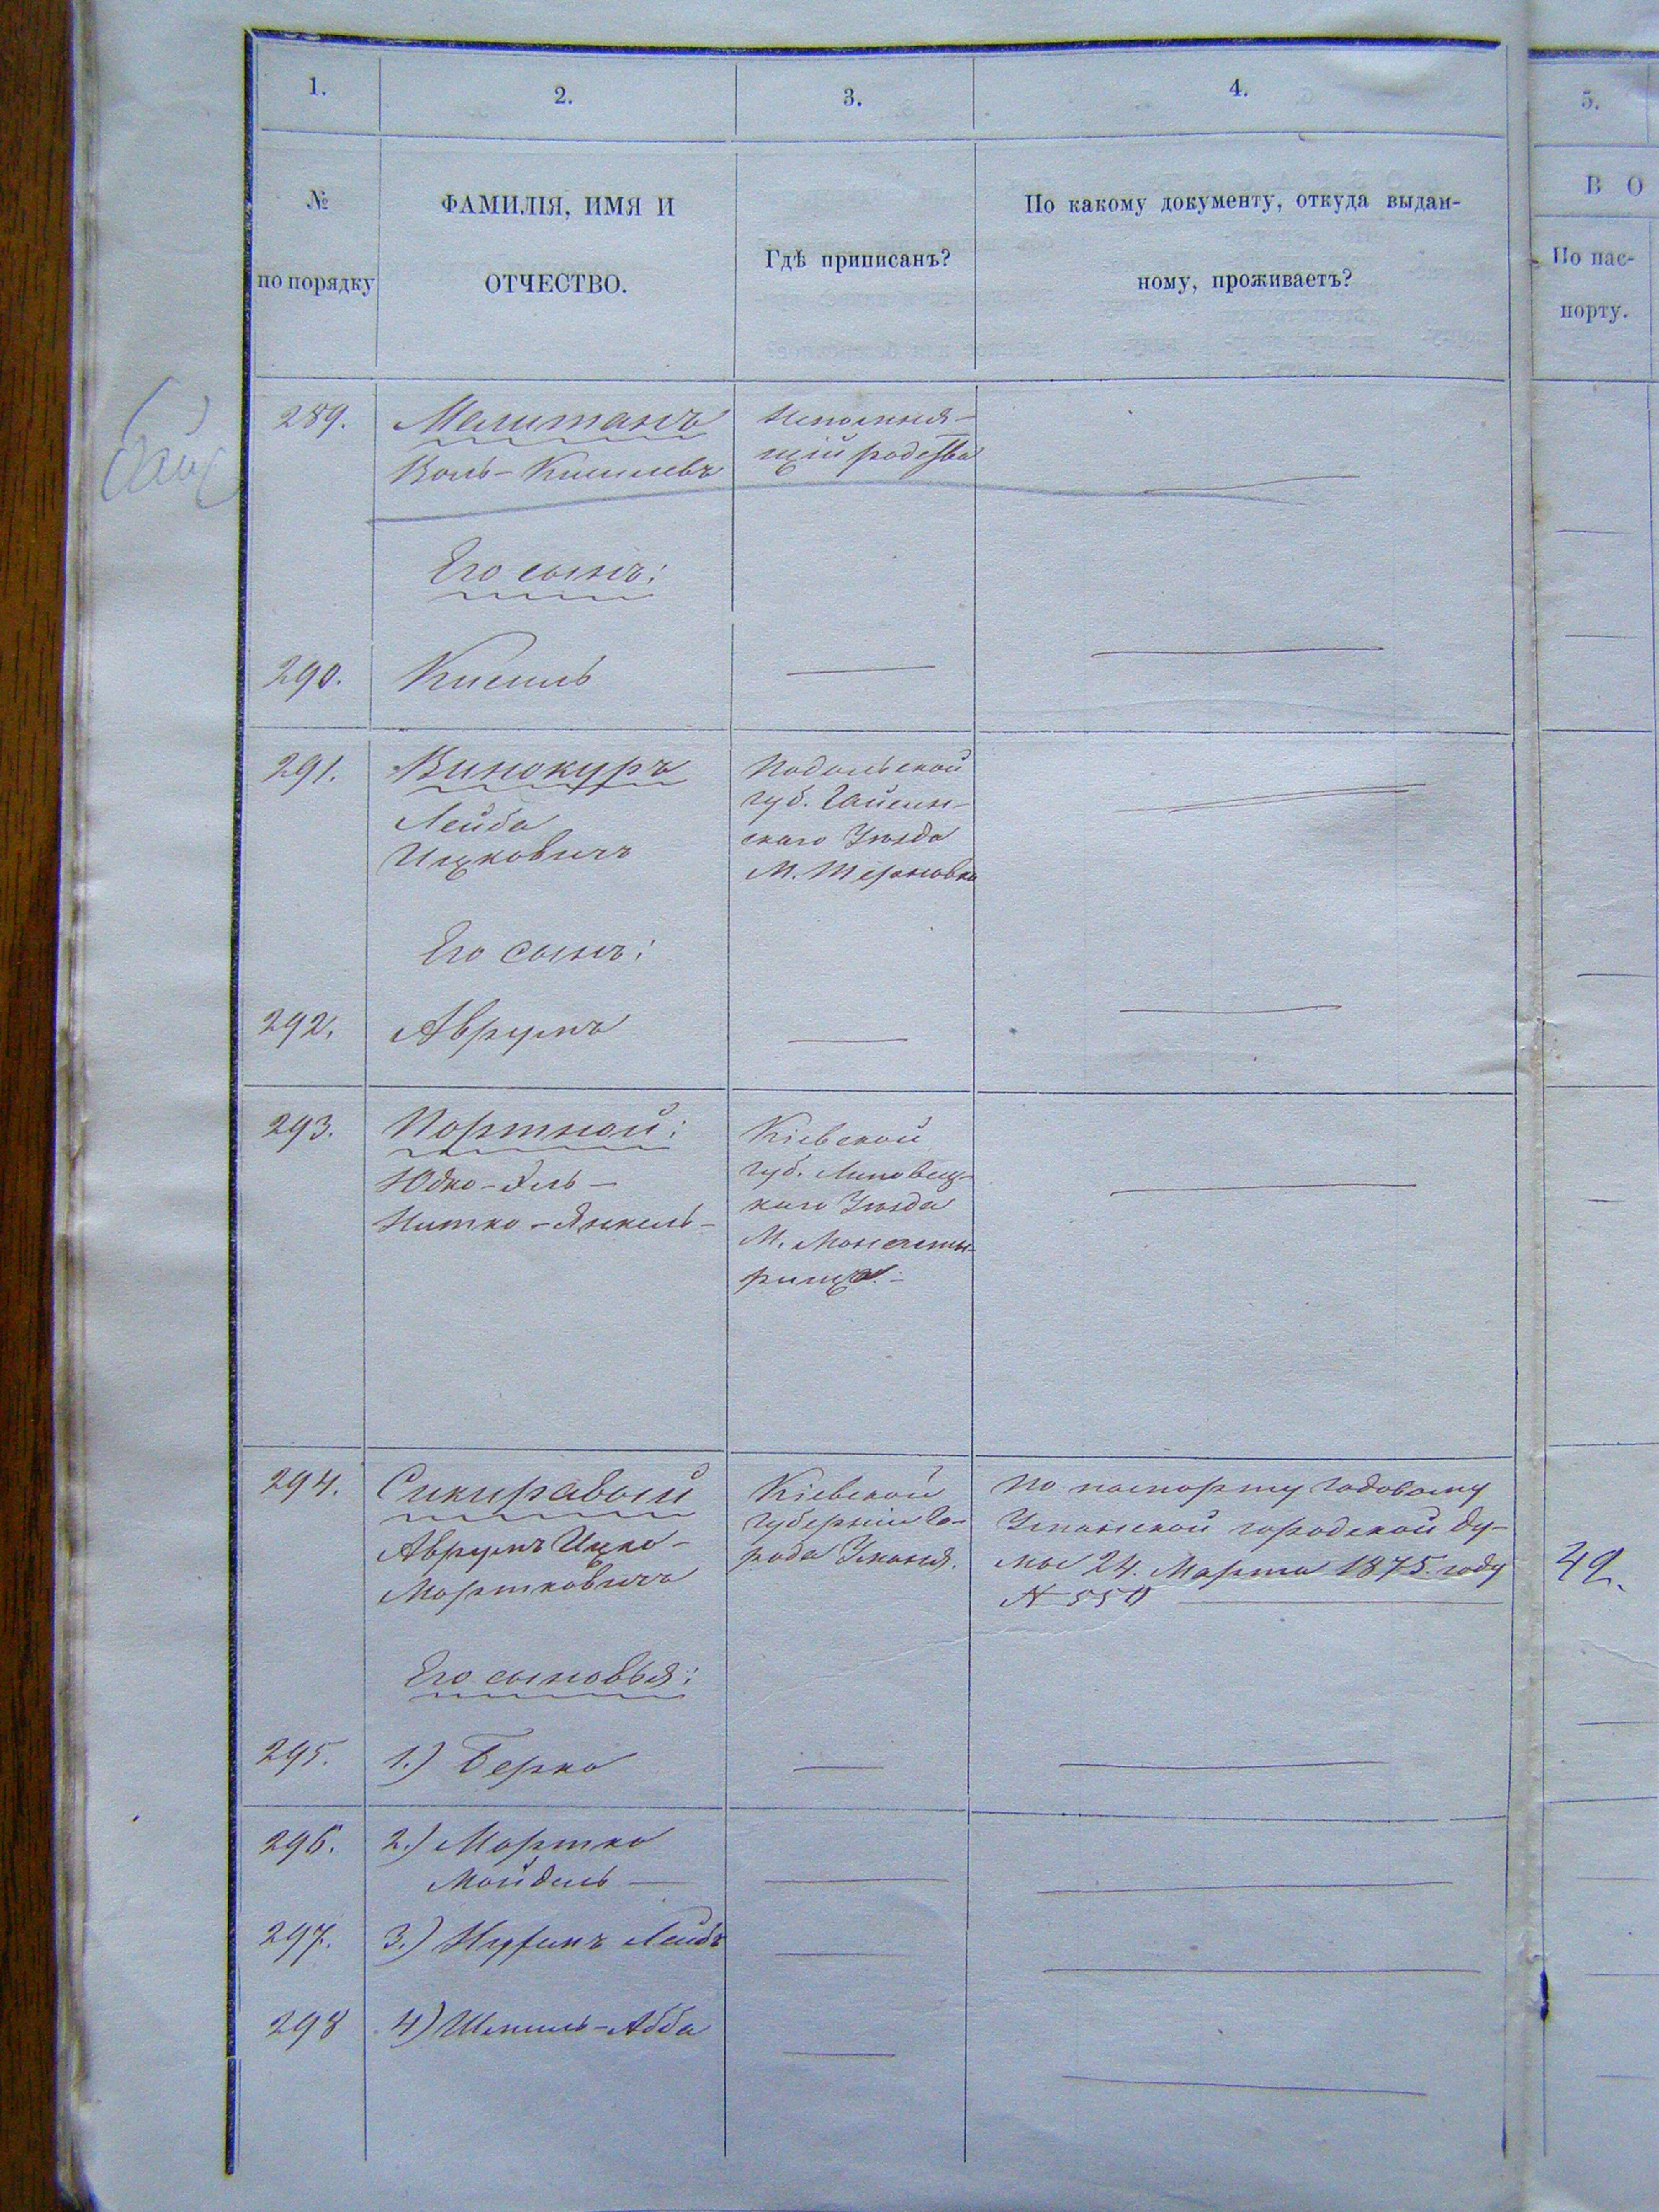 1.
2.
3.
4.
5.
№
по порядку
ФАМИЛІЯ, ИМЯ И
ОТЧЕСТВО.
Гдѣ приписанъ?
По какому документу, откуда выдан-
ному, проживаетъ?
В О
По пас-
порту.
289.
Мелитанъ
Воль-Кисилевъ
Непомня-
щій родства
Его сынъ:
290.
Кисиль
291.
Винокуръ
Лейба
Ицковичъ
Подольской
губ. Гайсин-
скаго Уѣзда
М. Терновка
Его сынъ:
292.
Аврумъ
293.
Портной:
Юдко-Эль-
Нитко-Янкель-
Кіевской
губ. Липовец-
каго Уѣзда
М. Монасты-
рища.
294.
Сикиравый
Аврумъ Ицко-
Мортковичъ
Кіевской
губерніи Го-
рода Уманя.
По паспорту годовому
Уманской городской Ду-
мы 24. Марта 1875. году
№ 550
49.
Его сыновья:
295.
1.) Берко
296.
2.) Мортко
Мойдель
297.
3.) Лейбъ
298
4) Шмиль-Абба